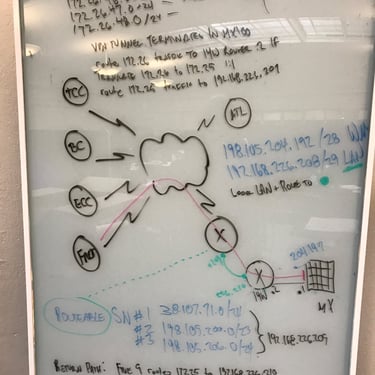 172.26.
172.26.47.0/24 =
172.26.48.0/24 =
VPN TUNNEL TERMINATES IN MX100
ROUTE 172.26 TRAFFIC TO 14W ROUTER 2 IF
TRANSLATE 172.26 TO 172.25 1:1
ROUTE 172.25 TRAFFIC TO 192.168.226.209
TCC
ATL
BC
198.105.204.192 /28 WAN
192.168.226.208/29 LAN
LOCAL LAN + ROUTE TO
ECC
X
204.197
.219
226.210
X
14W .2
.1
MX
ROUTEABLE
SN #1 38.107.71.0/24
#2 198.105.200.0/23
#3 198.105.206.0/24
192.168.226.209
RETURN PATH: FIVE 9 ROUTES 172.25 TO 192.168.226.210